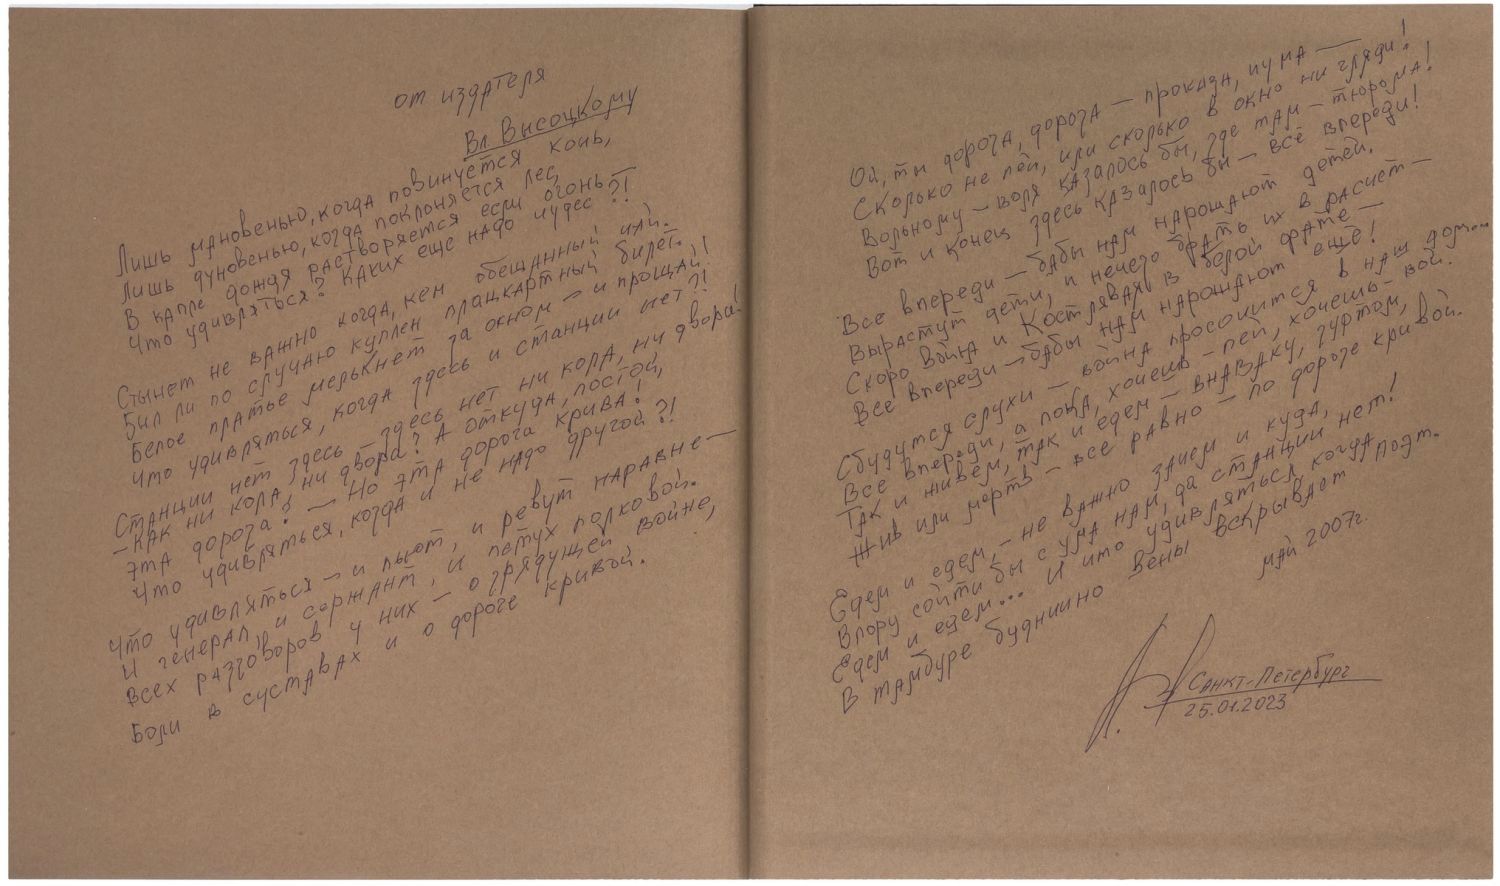 от издателя
Вл. Высоцкому
Лишь мановенью, когда повинуется конь,
Лишь дуновенью, когда поклоняется лес,
В капле дождя растворяется если огонь –
Что удивляться? Каких еще надо чудес?!
Стынет не важно когда, кем обещанный чай.
Был ли по случаю куплен плацкартный билет.
Белое платье мелькнет за окном – и прощай!
Что удивляться, когда здесь и станции нет?!
Станции нет здесь – здесь нет ни кола, ни двора!
– Как ни кола, ни двора? А откуда, постой,
Эта дорога? – Но эта дорога крива!
Что удивляться, когда и не надо другой?!
Что удивляться – и пьют, и ревут наравне –
И генерал, и сержант, и петух полковой.
Всех разговоров у них – о грядущей войне,
Боли в суставах и о дороге кривой.
Ой, ты дорога, дорога – проказа, чума –
Сколько не пей, или сколько в окно ни гляди!
Вольному – воля казалось бы, где там – тюрьма!
Вот и конец здесь казалось бы – всё впереди!
Все впереди – бабы нам нарожают детей.
Вырастут дети, и нечего брать их в расчет –
Скоро война и Костлявая в белой фате –
Все впереди – бабы нам нарожают ещё!
Сбудутся слухи – война просочится в наш дом...
Все впереди, а пока, хочешь – пей, хочешь – вой.
Так и живём, так и едем – внавалку, гуртом,
Жив или мертв – все равно – по дороге кривой.
Едем и едем, – не важно зачем и куда,
Впору сойти бы с ума нам, да станции нет!
Едем и едем... И что удивляться, когда
В тамбуре буднично вены вскрывает поэт.
май 2007г.
Санкт-Петербург
25.01.2023